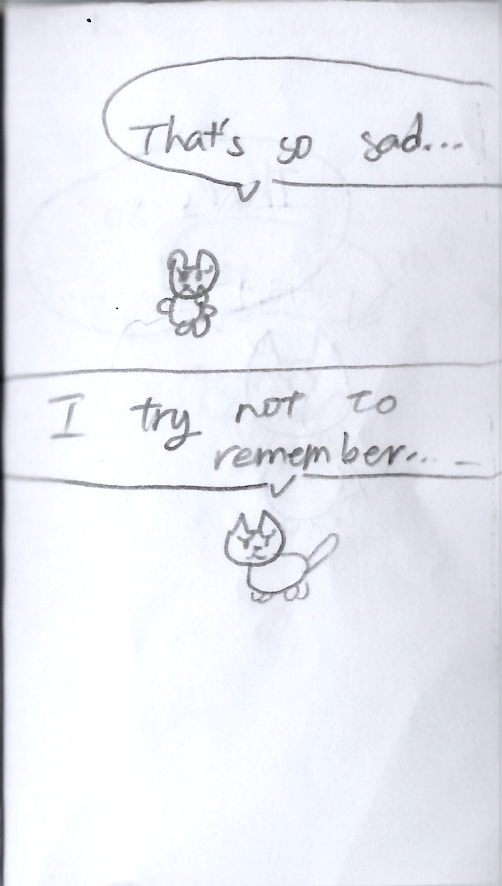 That's so sad...
I try not to
remember...